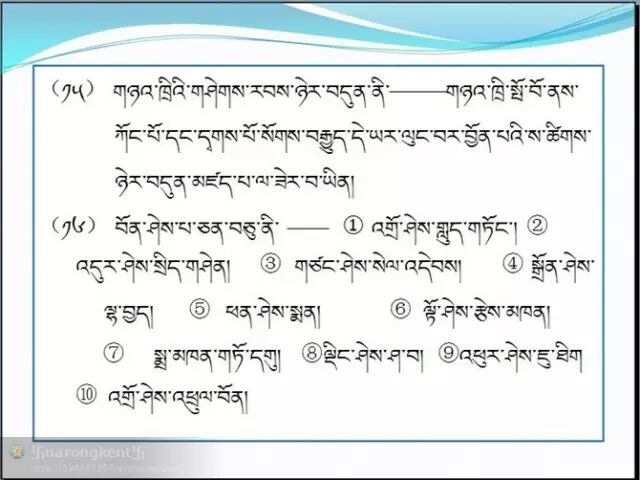 (༡༥) གཉའ་ཁྲིའི་གཤེགས་རབས་ཉེར་བདུན་ནི་———གཉའ་ཁྲི་སྤྲོ་བོ་ནས་
ཀོང་པོ་དང་དྭགས་པོ་སོགས་བརྒྱུད་དེ་ཡར་ལུང་བར་བྱོན་པའི་ས་ཚིགས་
ཉེར་བདུན་མཛད་པ་ལ་ཟེར་བ་ཡིན།
(༡༦) བོན་ཤེས་པ་ཅན་བཅུ་ནི་ —— ① འགྲོ་ཤེས་གླུད་གཏོང་། ②
འདུར་ཤེས་སྲིད་གཤེན། ③ གཙང་ཤེས་སེལ་འདེབས། ④ སྒྲོན་ཤེས་
ལྷ་བྱད། ⑤ ཕན་ཤེས་སྨན། ⑥ ལྟོ་ཤེས་རྩིས་མཁན།
⑦ སྨྲ་མཁན་གཏོ་དགུ། ⑧ལྡིང་ཤེས་ཤ་བ། ⑨འཕུར་ཤེས་ཇུ་ཐིག
⑩ འགྲོ་ཤེས་འཕྲུལ་བོན།
卐narongkent卐